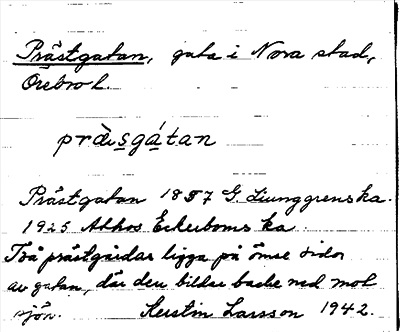 Prästgatan, gata i Nora stad,
Örebro l.
präsgátan
Prästgatan 1857 G. Ljunggrens ka.
1925 Abhos Eckerboms ka.
Två prästgårdar ligga på ömse sidor
av gatan, där den bildar backe ned mot
sjön. Kerstin Larsson 1942.